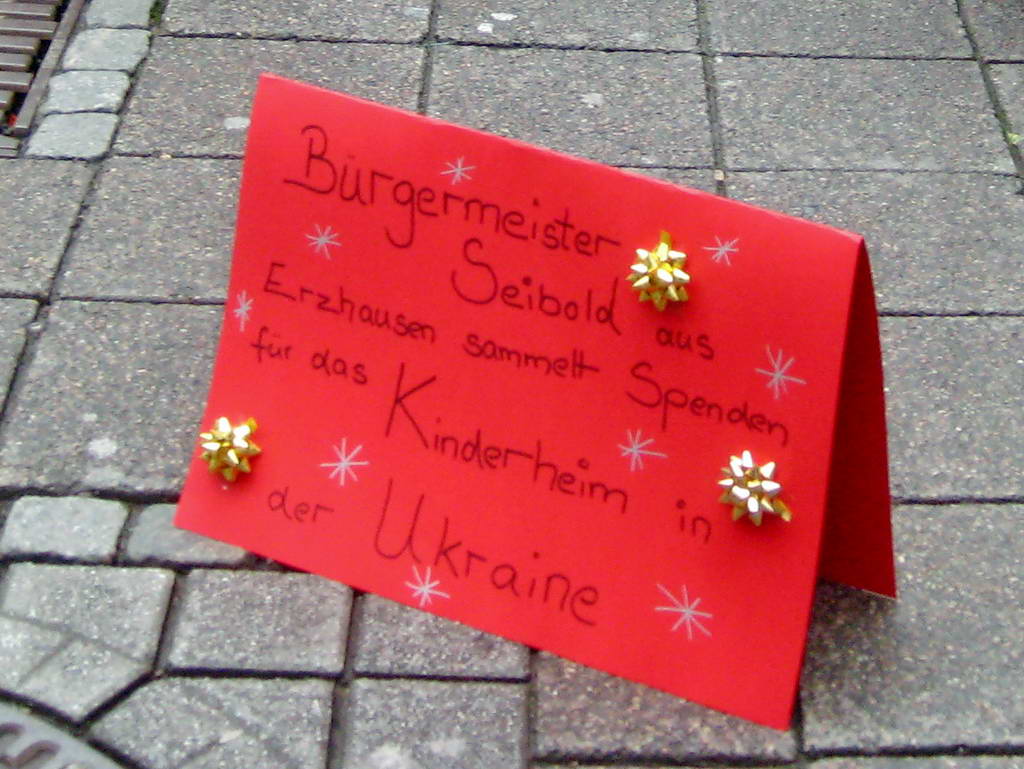 Bürgermeister
Seibold aus
Erzhausen sammelt Spenden
für das Kinderheim in
der Ukraine